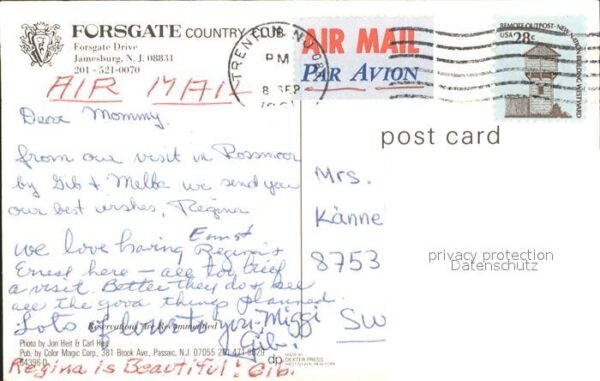 FORSGATE COUNTRY CLUB
Forsgate Drive
Jamesburg, N. J. 08831
201 - 521-0070
AIR MAIL
TRENTON NJ
PM
8 SEP
AIR MAIL
PAR AVION
REMOTE OUTPOST-NEW NATION BUILDING WESTWARD
USA 28c
post card
Dear Mommy,
from our visit in Rossmoor
by Gib & Melba we send you
our best wishes, Regina
Ernst
We love having Regina &
Ernest here - all too brief
a visit. Better they do & see
all the good things planned.
Lots of love to you, Miggi
Gib.
Reservations Are Recommended
Photo by Jon Heit & Carl Heit
Pub. by Color Magic Corp., 381 Brook Ave., Passaic, N.J. 07055 201 471 9029
64396-D
dp
MADE BY
DEXTER PRESS
WEST NYACK, NEW YORK
Regina is Beautiful: Gib.
Mrs.
Känne
8753
SW
privacy protection
Datenschutz